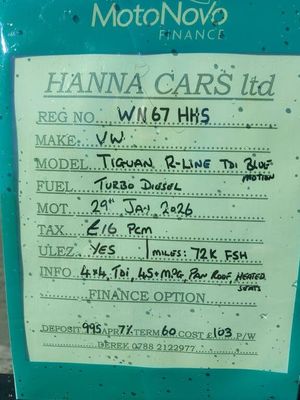 MotoNovo
FINANCE
HANNA CARS ltd
REG NO. WN67 HKS
MAKE: VW
MODEL: TIGUAN R-LINE TDI BLUE
MOTION
FUEL: TURBO DIESEL
MOT 29th JAN 2026
TAX £16 PCM
ULEZ: YES MILES: 72K FSH
INFO. 4x4 TDI, 45+MPG, PAN ROOF, HEATED
SEATS
FINANCE OPTION
DEPOSIT 995 APR 7% TERM 60 COST £103 P/W
DEREK 0788 2122977